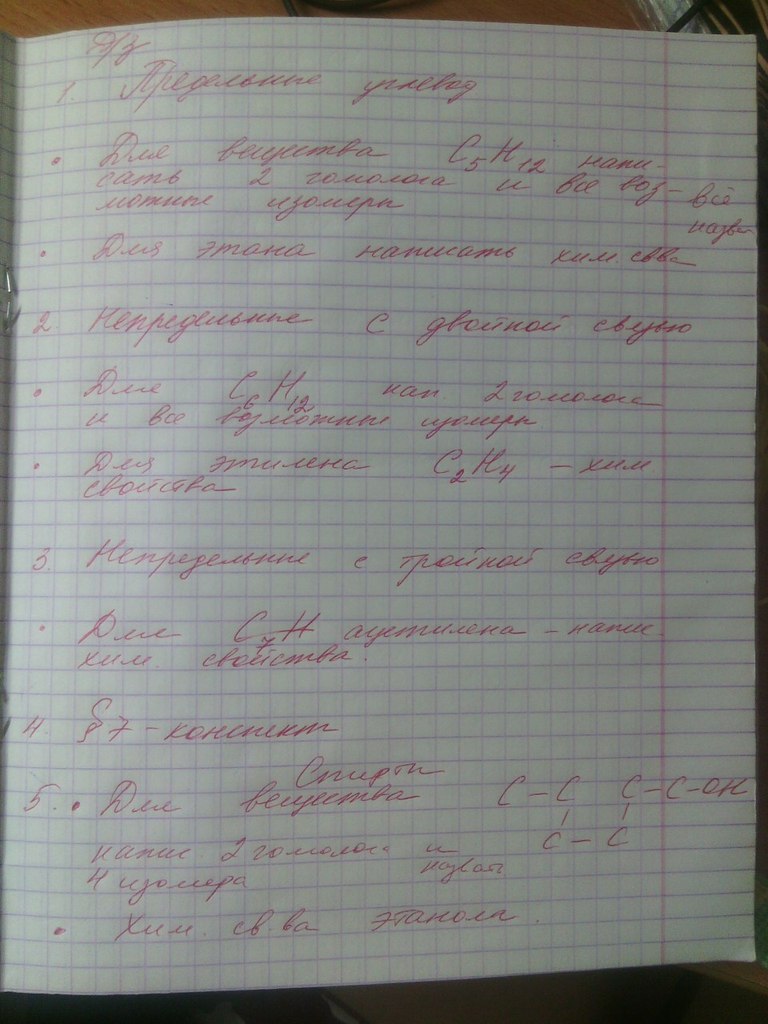 Д/з
1. Предельные углевод
• Для вещества C5H12 напи-
сать 2 гомолога и все воз-
можные изомеры
всё
назва
• Для этана написать хим. св-ва
2. Непредельные с двойной связью
• Для C6H12 нап. 2 гомолога
и все возможные изомеры
• Для этилена C2H4 – хим
свойства
3. Непредельные с тройной связью
• Для ацетилена – напис.
хим. свойства.
4. § 7 – конспект
Спирты
5. • Для вещества C – C C – C – OH
C – C
напис. 2 гомолога и
4 изомера назвать
• Хим. св-ва этанола.